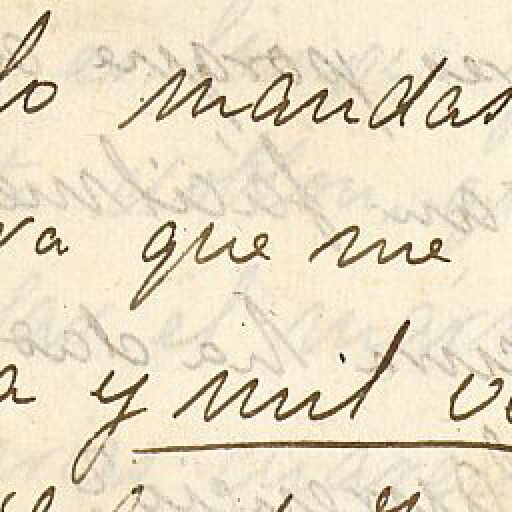 lo mandas
va que me
a y mil ve